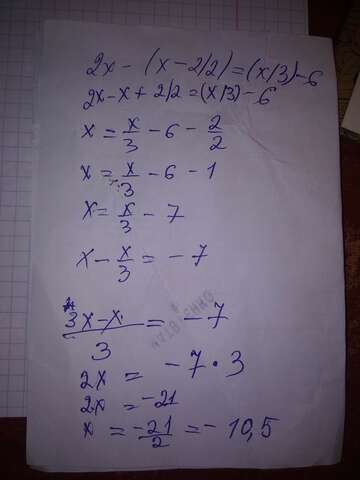 2x - (x - 2/2) = (x/3) - 6
2x - x + 2/2 = (x/3) - 6
x = x/3 - 6 - 2/2
x = x/3 - 6 - 1
x = x/3 - 7
x - x/3 = - 7
3x - x/3 = - 7
2x = - 7 · 3
2x = -21
x = -21/2 = - 10,5